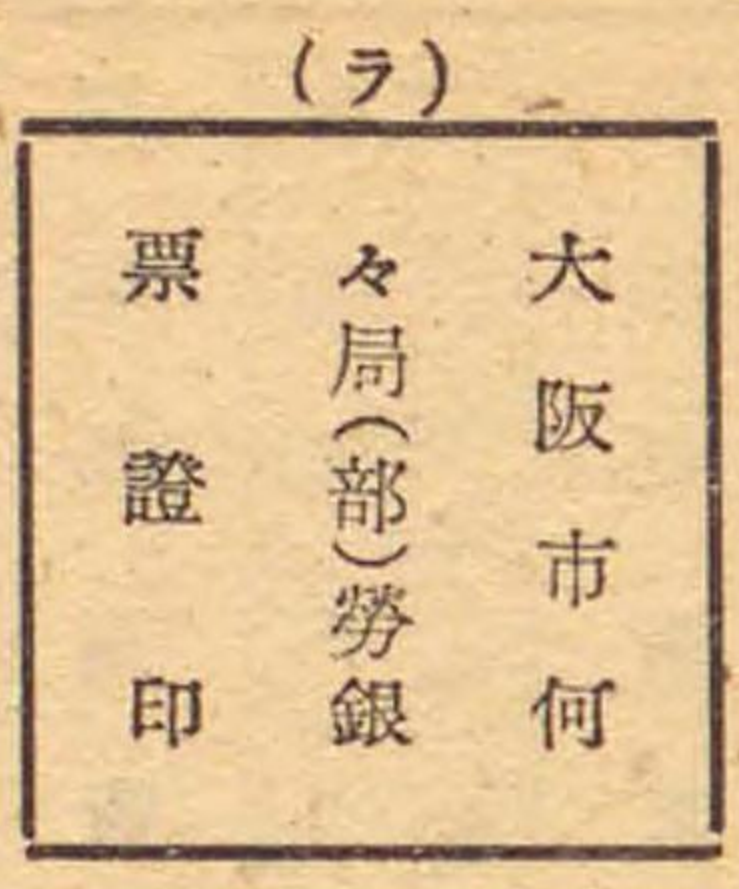 (ラ)
大阪市何
々局(部)勞銀
票證印